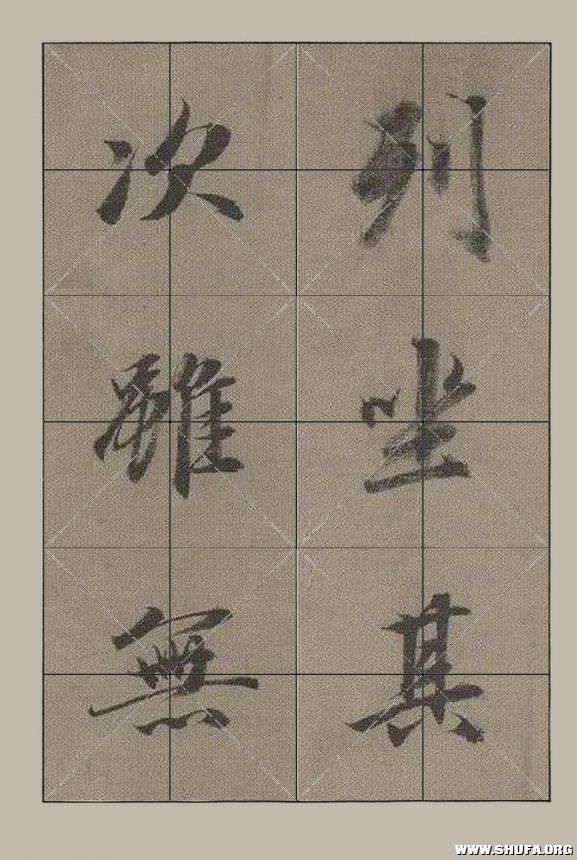 列坐其
次雖無
WWW.SHUFA.ORG